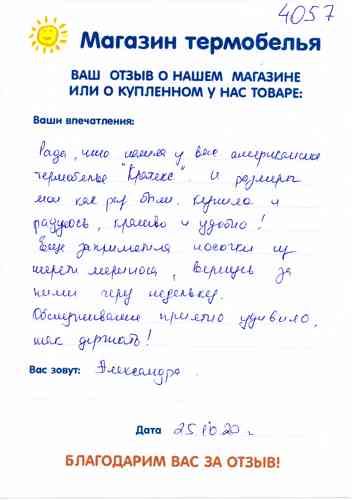 4057
Магазин термобелья
ВАШ ОТЗЫВ О НАШЕМ МАГАЗИНЕ
ИЛИ О КУПЛЕННОМ У НАС ТОВАРЕ:
Ваши впечатления:
Рада, что нашла у вас американское
термобелье "Кратекс". И размеры
мои как раз были. Купила и
радуюсь, красиво и удобно!
Еще заприметила носочки из
шерсти мериноса, вернусь за
ними через недельку.
Обслуживание приятно удивило,
так держать!
Вас зовут: Александра.
Дата 25.10.20 г.
БЛАГОДАРИМ ВАС ЗА ОТЗЫВ!